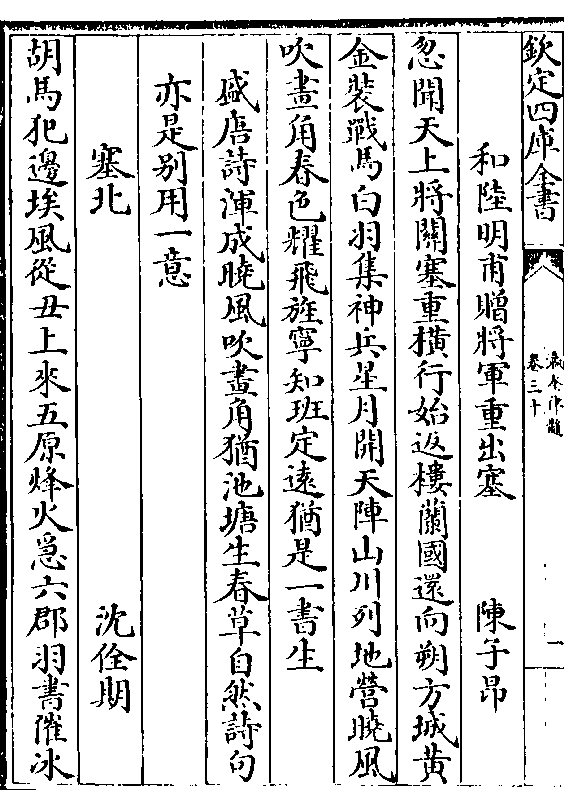 欽定四庫全書
瀛奎律髓
卷三十
一
和陸明甫贈將軍重出塞　陳子昂
忽聞天上將關塞重横行始返樓蘭國還向朔方城黄
金裝戰馬白羽集神兵星月開天陣山川列地營曉風
吹畫角春色耀飛旌寧知班定遠猶是一書生
盛唐詩渾成曉風吹畫角猶池塘生春草自然詩句
亦是别用一意
塞北　沈佺期
胡馬犯邊埃風從丑上來五原烽火急六郡羽書催冰